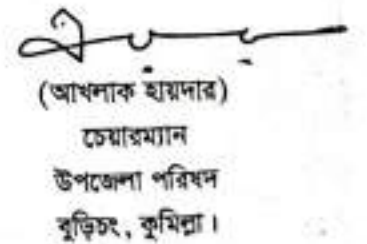 (আখলাক হায়দার)
চেয়ারম্যান
উপজেলা পরিষদ
বুড়িচং, কুমিল্লা।